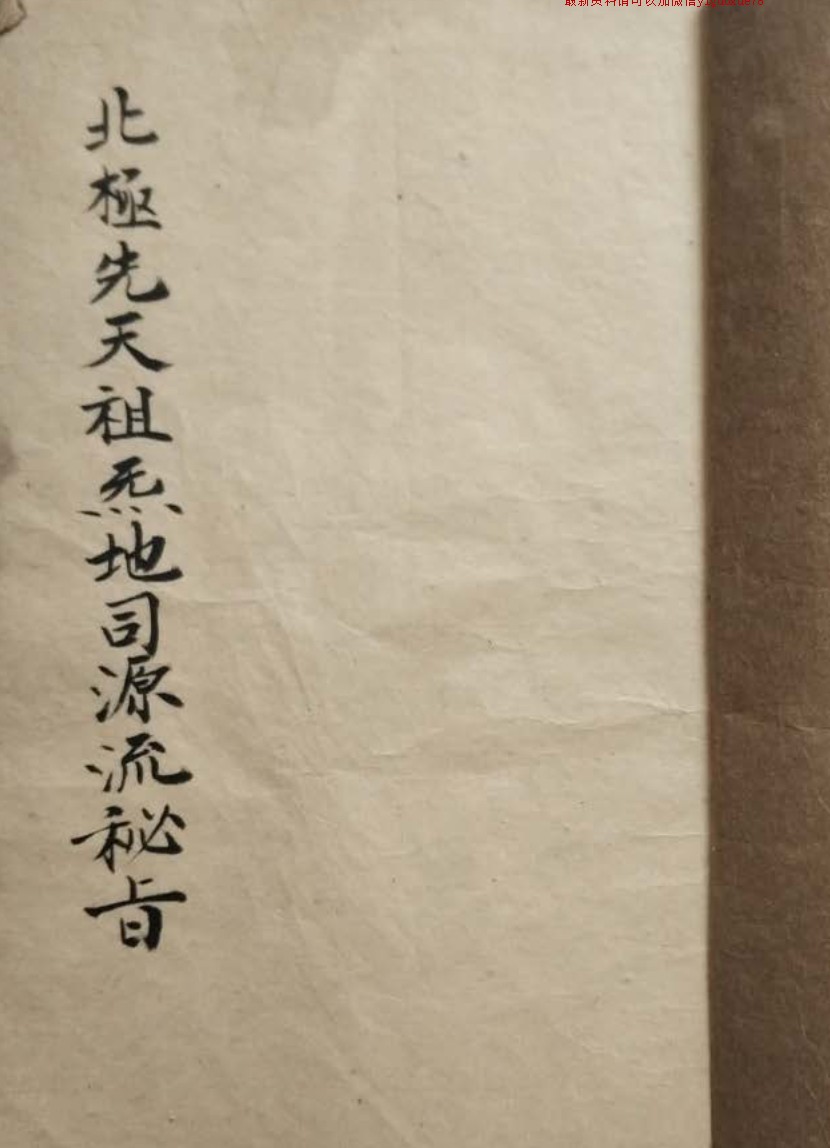 最新资料请可以加微信
北極先天祖炁地司源流秘旨